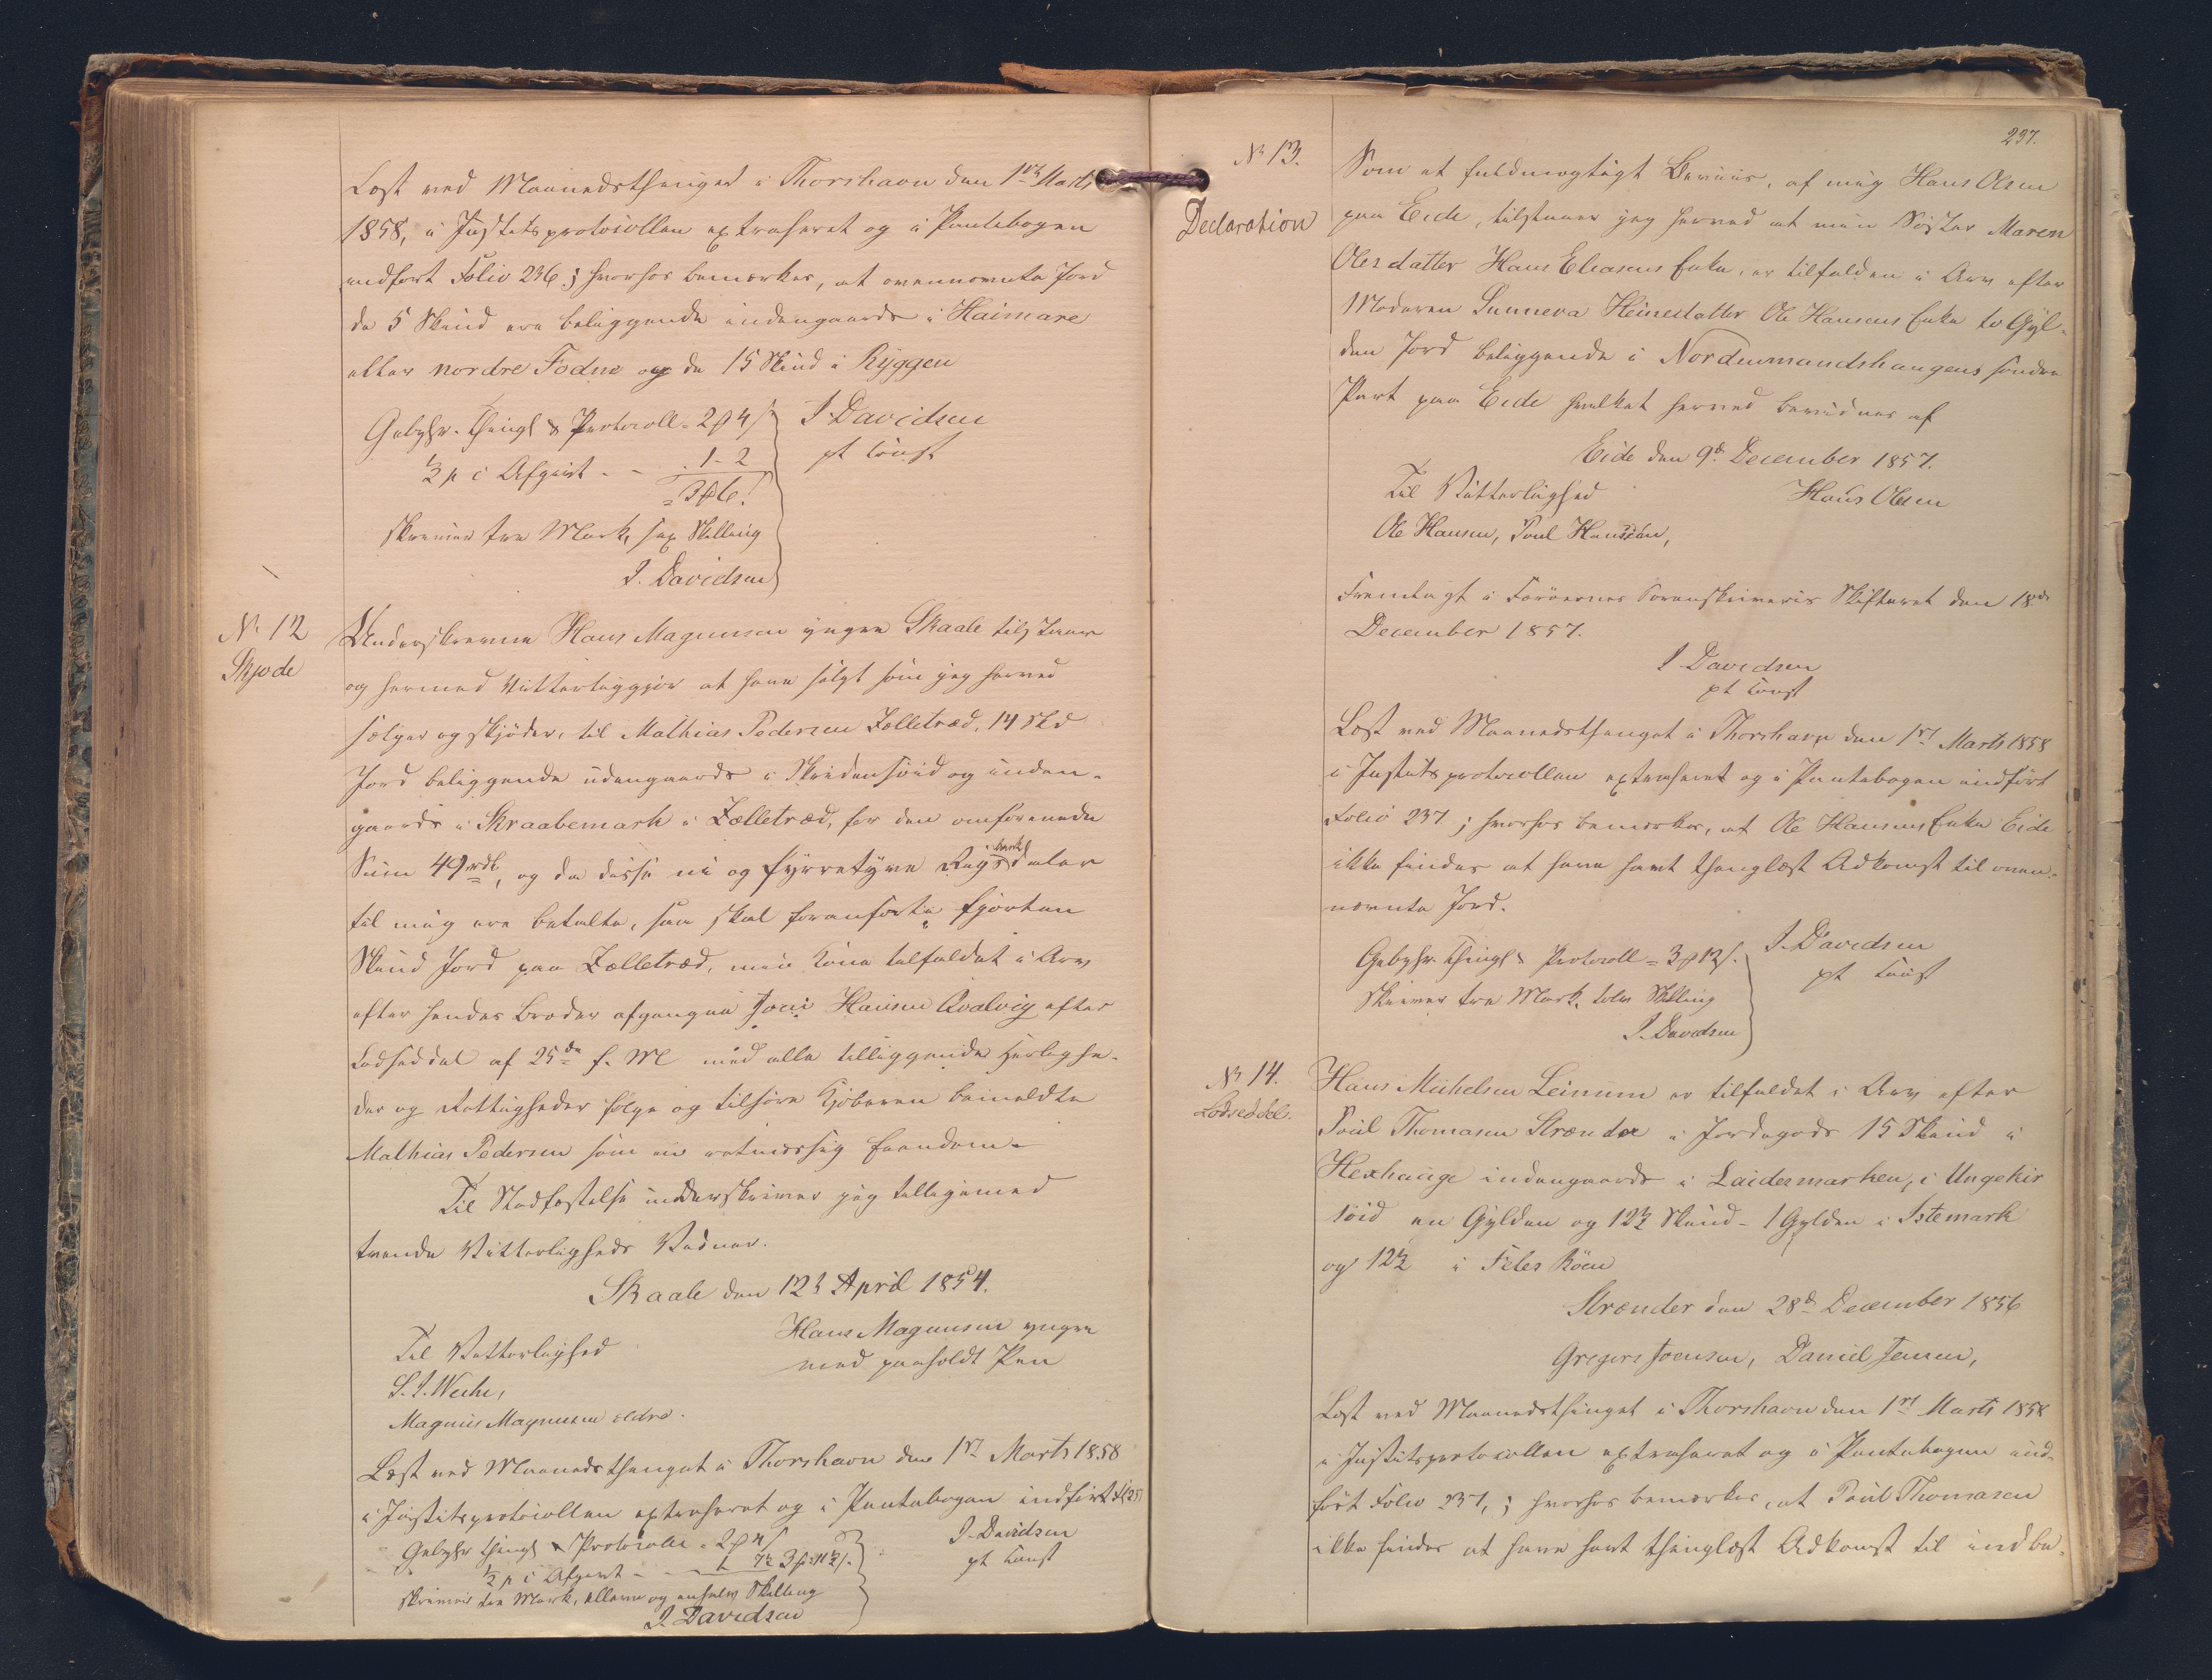 Læst ved Maanedsthinget i Thorshavn den 1ste Marts
1858, i Justitsprotocollen extraheret og i Pantebogen
indført Folio 236; hvorhos bemærkes, at ovennævnte Jord
de 5 Skind ere beliggende indengaards i Haimare
eller nordre Fodne og de 15 Skind i Ryggen
Gebyhr. Thingl & Protocoll = 2 ₰ 4 ß
J. Davidsen
½ p C Afgivt - - . 1 - 2
pt Const
= 3 ₰ 6 ß.
skriver tre Mark, sex Skilling
J. Davidsen
No 12
Skjøde
Underskrevne Hans Magnusen yngre Skaale tilstaaer
og hermed Vitterliggjør at have solgt som jeg herved
sælger og skjøder, til Mathias Pedersen Zelletræd, 14 Skd
Jord beliggende udengaards i Skridensøid og inden-
gaards i Skraabemark i Zelletræd, for den omforenede
Sum 49 rdl, og da disse ni og fyrretyve Rigsbankdaler
til mig ere betalte, saa skal foranførte fjorten
Skind Jord paa Zelletræd, min Kone tilfaldet i Arv
efter hendes Broder afgangne Joen Hansen Qvalvig efter
Lodseddel af 25de f. M med alle tilliggende Herlighe-
der og Rettigheder følge og tilhøre Kjøberen bemeldte
Mathias Pedersen som en retmæssig Eiendom-
Til Stadfæstelse underskriver jeg tilligemed
tvende Vitterligheds Vidner.
Skaale den 12te April 1854.
Hans Magnusen yngre
med paaholdt Pen
Til Vitterlighed
Magnus Magnusen ældre.
Læst ved Maanedsthinget i Thorshavn den 1ste Marts 1858
i Justitsprotocollen extraheret og i Pantebogen indført
Gebyhr Thingl & Protocoller . 2 ₰ 4 ß
½ p C Afgivt - - 1 7½ 3 ₰ 11½ ß.
J. Davidsen
pt Const
skriver tre Mark, elleve og enhalv Skilling
J. Davidsen
237.
No 13.
Declaration
Som et fuldmægtigt Beviis, af mig Hans Olsen
paa Eide, tilstaaer jeg herved at min Søster Maren
Olesdatter Hans Eliasens Enke, er tilfalden i Arv efter
Moderen Sunneva Heinesdatter Ole Hansens Enke to Gyl-
den Jord beliggende i Nordenmandshaugens søndre
Part paa Eide hvilket herved bevidnes af
Eide den 9de December 1857.
Til Vitterlighed
Hans Olsen
Ole Hansen, Poul Hansen,
Fremlagt i Færøernes Sorenskriveris Skifteret den 18de
December 1857.
J Davidsen
pt Const
Læst ved Maanedsthinget i Thorshavn den 1ste Marts 1858
i Justitsprotocollen extraheret og i Pantebogen indført
Folio 237; hvorhos bemærkes, at Ole Hansens Enke Eide
ikke findes at have havt thinglæst Adkomst til oven-
nævnte Jord.
Gebyhr. Thingl & Protocoll = 3 ₰ 12 ß.
J. Davidsen
pt Const
skriver tre Mark, tolv Skilling
J. Davidsen
No 14.
Lodseddel.
Hans Michelsen Leinum er tilfaldet i Arv efter
Poul Thomasen Strænder i Jordegods 15 Skind i
Hexhauge indengaards i Laidesmarken, i Ungekir
søid en Gylden og 12½ Skind - 1 Gylden i Istemark
og 12½ i Feles Röen
Strænder den 28de December 1856
Gregers Joensen, Daniel Jensen,
Læst ved Maanedsthinget i Thorshavn den 1ste Marts 1858
i Justitsprotocollen extraheret og i Pantebogen ind-
ført Folio 237,; hvorhos bemærkes, at Poul Thomasen
ikke findes at have havt thinglæst Adkomst til indbe-